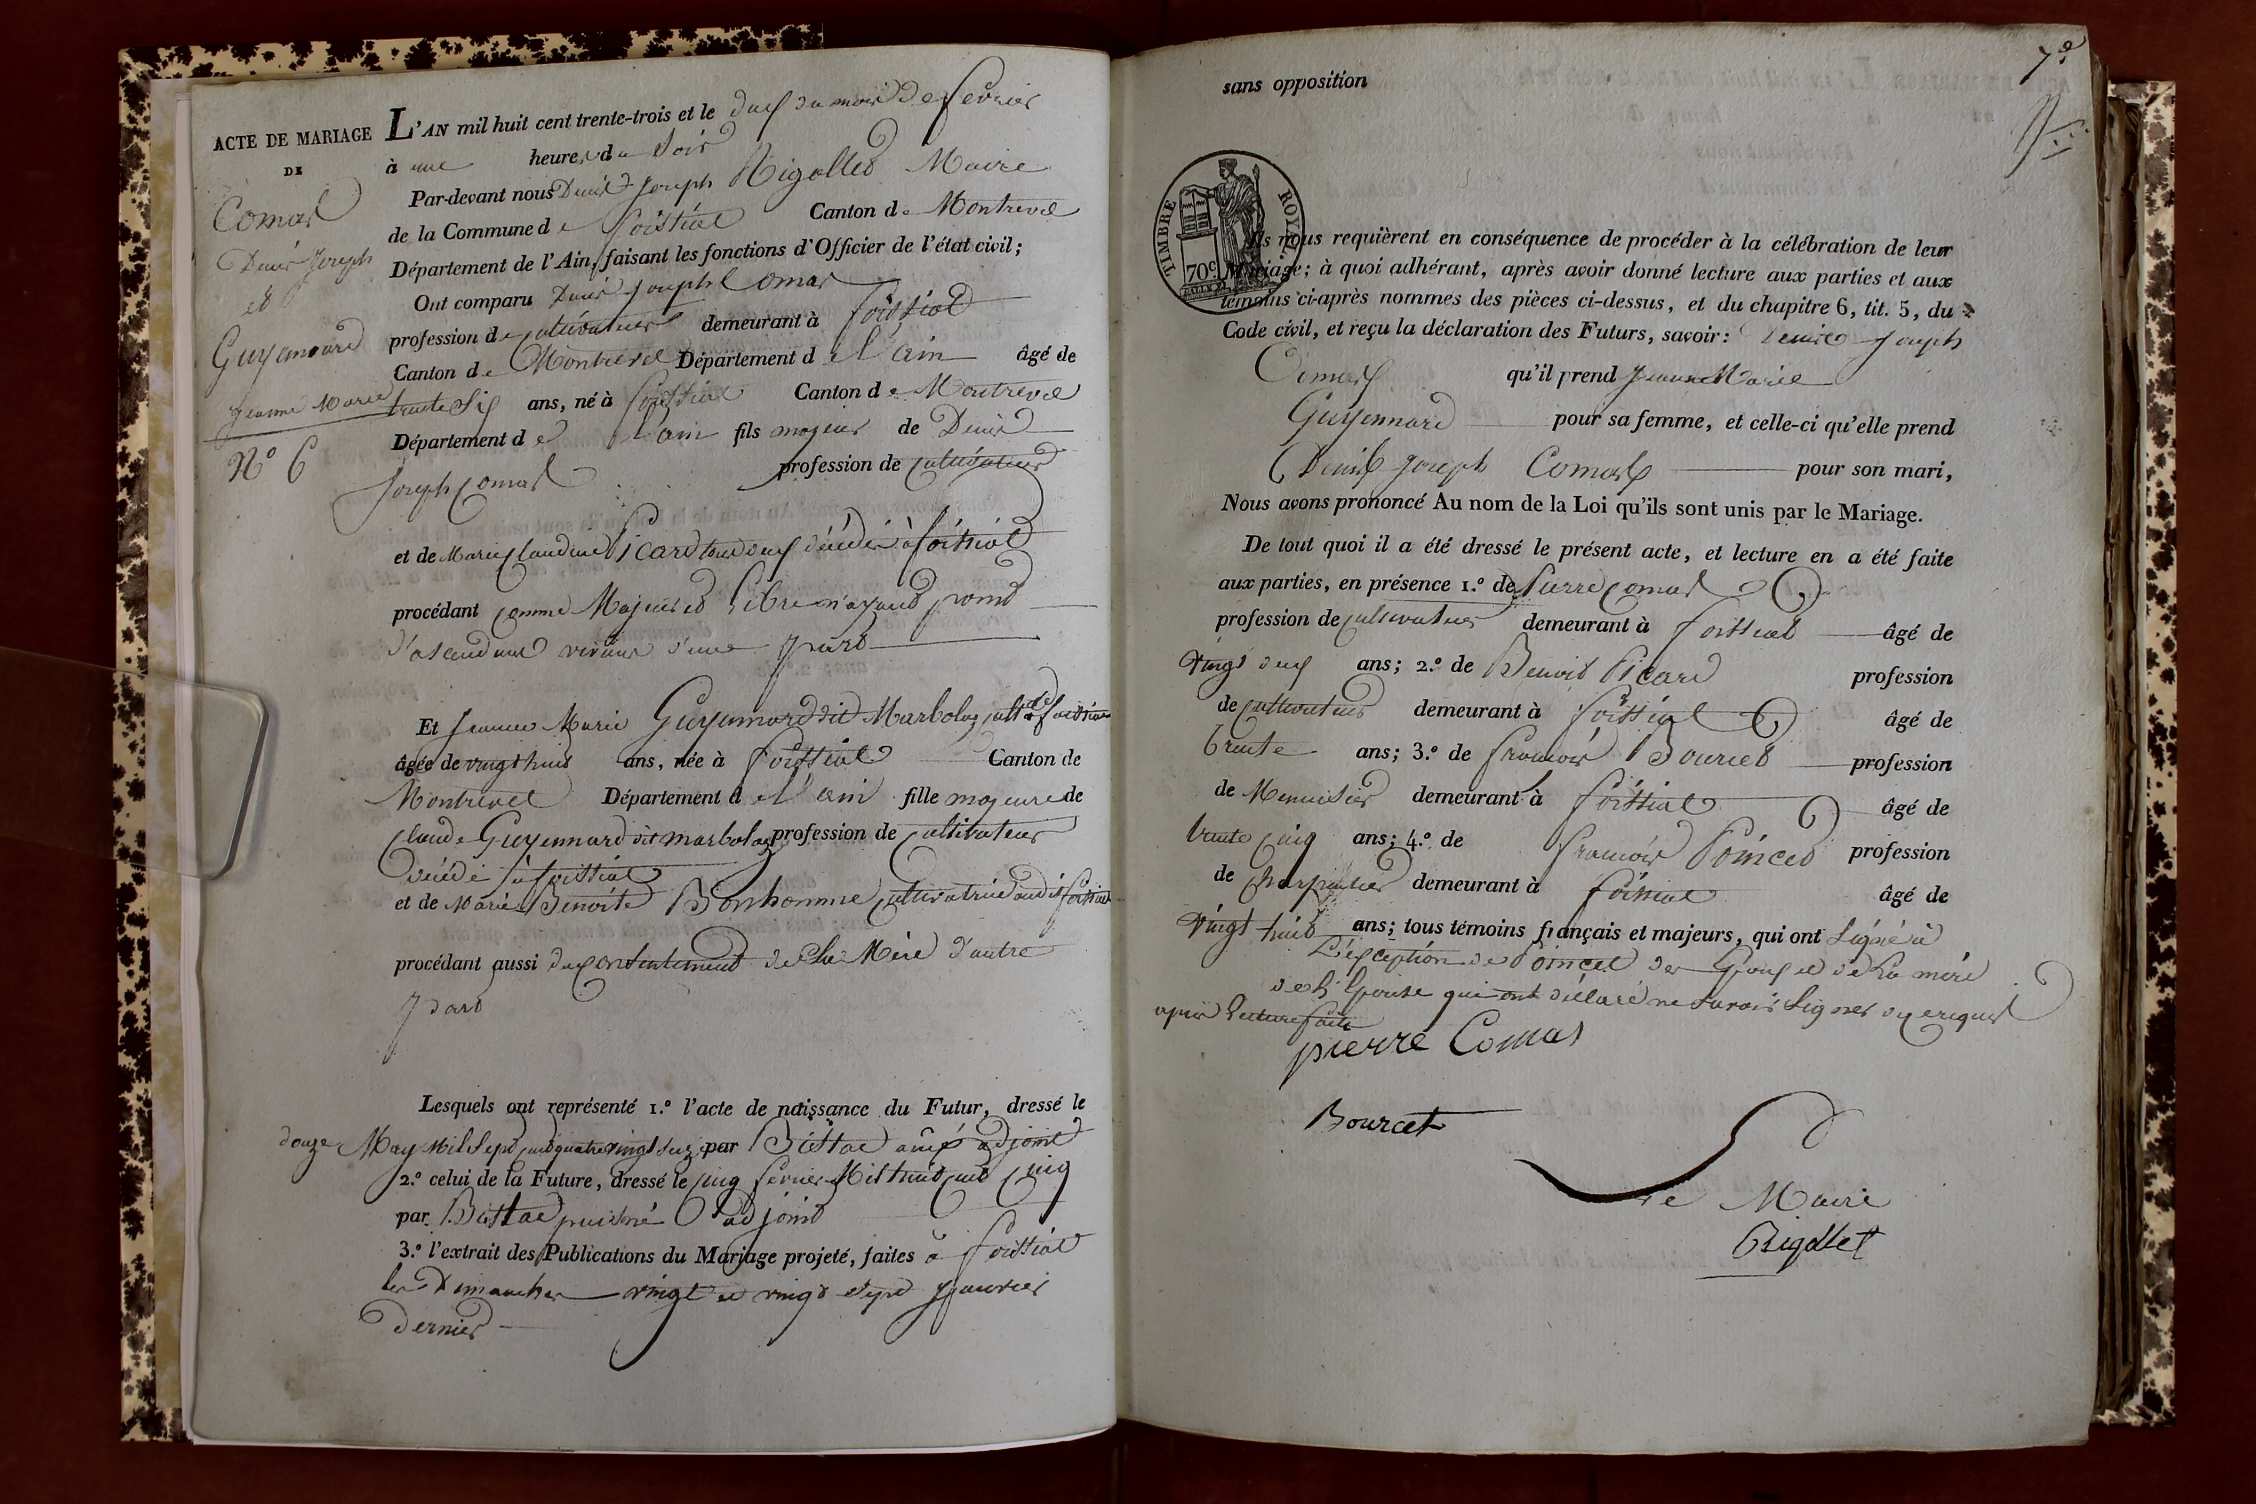 ACTE DE MARIAGE
DE
Comas
Denis Joseph
et
Guyennard
Jeanne Marie
N° 6
L'AN mil huit cent trente-trois et le deux du mois de fevrier
à une heure du Soir
Par-devant nous Denis Joseph Rigollet Maire
de la Commune de foissiat Canton de Montrevel
Département de l'Ain, faisant les fonctions d'Officier de l'état civil;
Ont comparu Denis Joseph Comas
profession de cultivateur demeurant à foissiat
Canton de Montrevel Département de l'ain âgé de
trente Six ans, né à foissiat Canton de Montrevel
Département de l'ain fils majeur de Denis
Joseph Comas profession de cultivateur
et de Marie Claudine Picard tous deux décédés à foissiat
procédant comme Majeur et libre n'ayant point
d'ascendants vivans d'une part
Et Jeanne Marie Guyennard dit Marbolaz cult. à foissiat
âgée de vingt huit ans, née à foissiat Canton de
Montrevel Département de l'ain fille majeure de
Claude Guyennard dit marbolaz profession de cultivateur
décédé à foissiat
et de Marie Benoite Bonhomme cultivatrice audit foissiat
procédant aussi du consentement de Sa Mère d'autre
part
Lesquels ont représenté 1.° l'acte de naissance du Futur, dressé le
douze May Mil Sept cent quatre vingt seize par aîné adjoint
2.° celui de la Future, dressé le cinq fevrier Mil huit cent cinq
par puisné adjoint
3.° l'extrait des Publications du Mariage projeté, faites à foissiat
les Dimanches vingt et vingt Sept Janvier
dernier
7e
sans opposition
TIMBRE ROYAL
70c
Ils nous requièrent en conséquence de procéder à la célébration de leur
Mariage; à quoi adhérant, après avoir donné lecture aux parties et aux
témoins ci-après nommes des pièces ci-dessus, et du chapitre 6, tit. 5, du
Code civil, et reçu la déclaration des Futurs, savoir: Denis Joseph
Comas qu'il prend Jeanne Marie
Guyennard pour sa femme, et celle-ci qu'elle prend
Denis Joseph Comas pour son mari,
Nous avons prononcé Au nom de la Loi qu'ils sont unis par le Mariage.
De tout quoi il a été dressé le présent acte, et lecture en a été faite
aux parties, en présence 1.° de Pierre Comas
profession de cultivateur demeurant à foissiat âgé de
vingt deux ans; 2.° de Benoit Picard profession
de cultivateur demeurant à foissiat âgé de
trente ans; 3.° de francois Bourcet profession
de Menuisier demeurant à foissiat âgé de
trente cinq ans; 4.° de francois Poincet profession
de Charpentier demeurant à foissiat âgé de
vingt huit ans; tous témoins français et majeurs, qui ont Signé à
L'exception de Poincet des Epoux et de La mère
de L'Epouse qui ont déclaré ne Savoir Signer
après lecture faite
pierre Comas
Bourcet
Le Maire
Rigollet